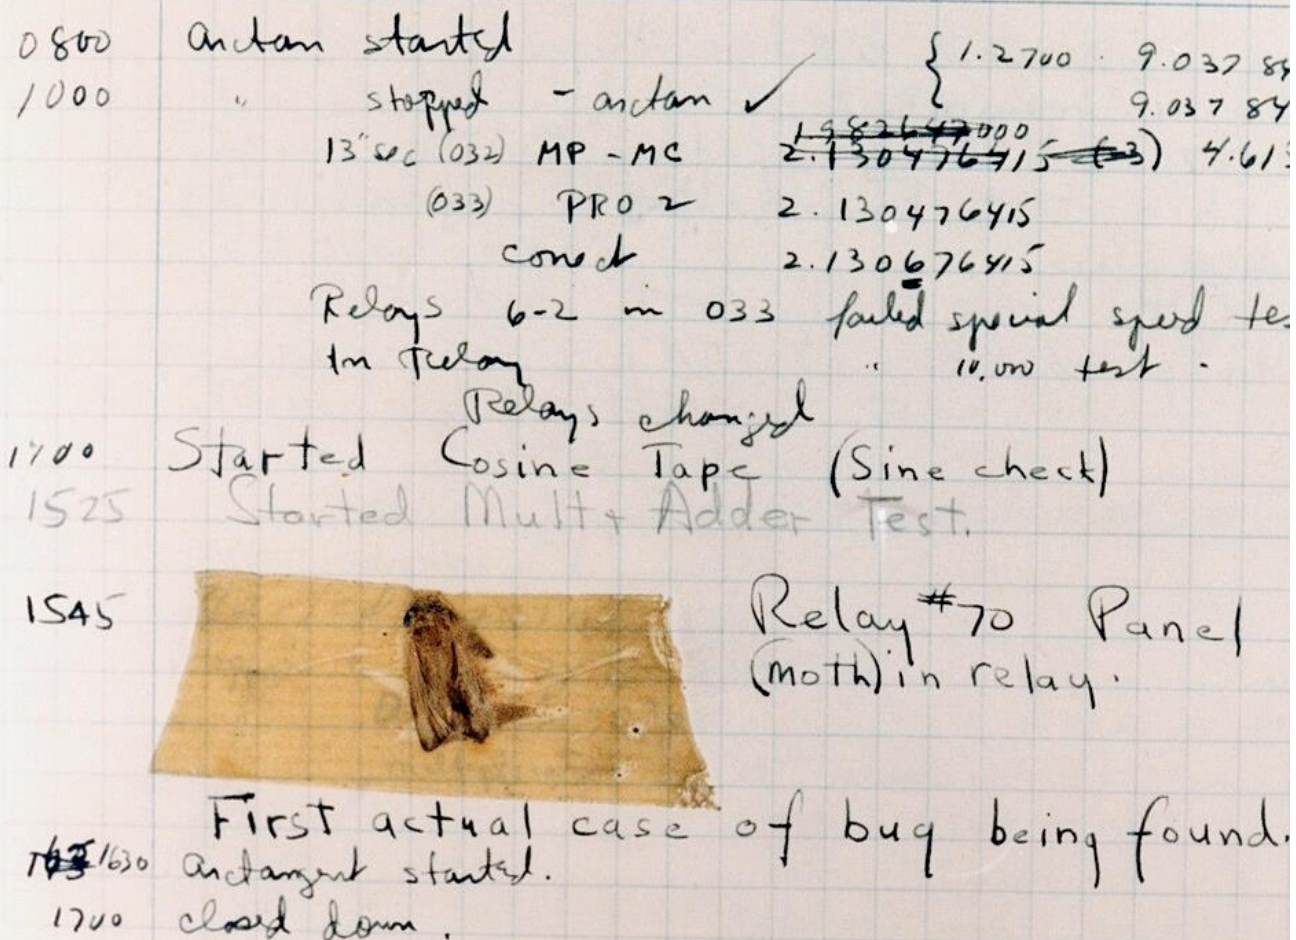 0800 arctan started { 1.2700 · 9.037 84
1000 " stopped - arctan ✓ 9.037 84
1.982647000
13" sec (032) MP - MC 2.130476415 (-3) 4.613
(033) PRO 2 2.130476415
conect 2.130676415
Relays 6-2 in 033 failed special speed tes
In Relay " 10,000 test.
Relays changed
1700 Started Cosine Tape (Sine check)
1525 Started Mult + Adder Test.
1545 Relay #70 Panel
(moth) in relay.
First actual case of bug being found.
1630 arctangent started.
1700 closed down.